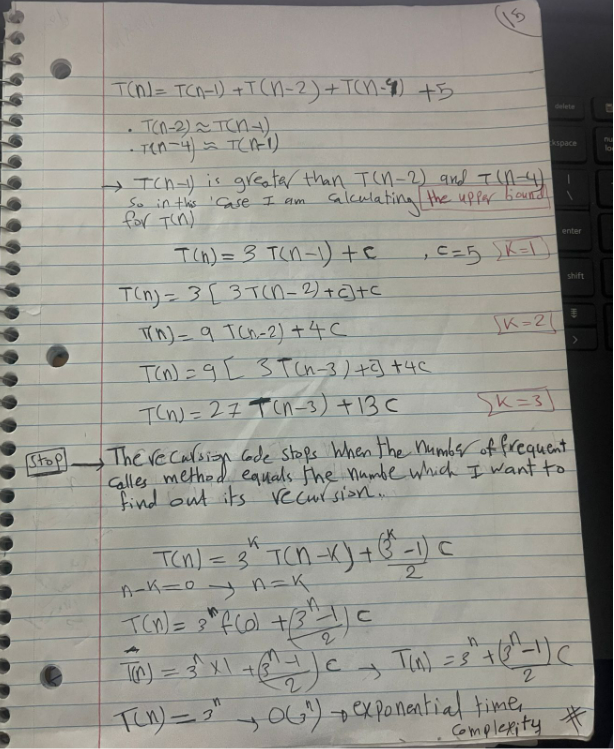 15
T(n) = T(n-1) + T(n-2) + T(n-4) + 5
. T(n-2) ≈ T(n-1)
. T(n-4) ≈ T(n-1)
→ T(n-1) is greater than T(n-2) and T(n-4)
so in this case I am calculating the upper bound
for T(n)
T(n) = 3 T(n-1) + c , c=5 K=1
T(n) = 3 [ 3T(n-2) + c] + c
T(n) = 9 T(n-2) + 4C K=2
T(n) = 9 [ 3T(n-3) + c] + 4c
T(n) = 27 T(n-3) + 13 C K=3
Stop → The recursion code stops when the number of frequent
calles method equals the numbe which I want to
find out its recursion..
T(n) = 3^K T(n-K) + (3^K - 1)/2 C
n-K=0 → n=K
T(n) = 3^n f(0) + (3^n - 1 / 2) C
T(n) = 3^n x1 + (3^n - 1 / 2) C → T(n) = 3^n + (3^n - 1 / 2) C
T(n) = 3^n → O(3^n) → exponential time
complexity #
delete
kspace
enter
shift